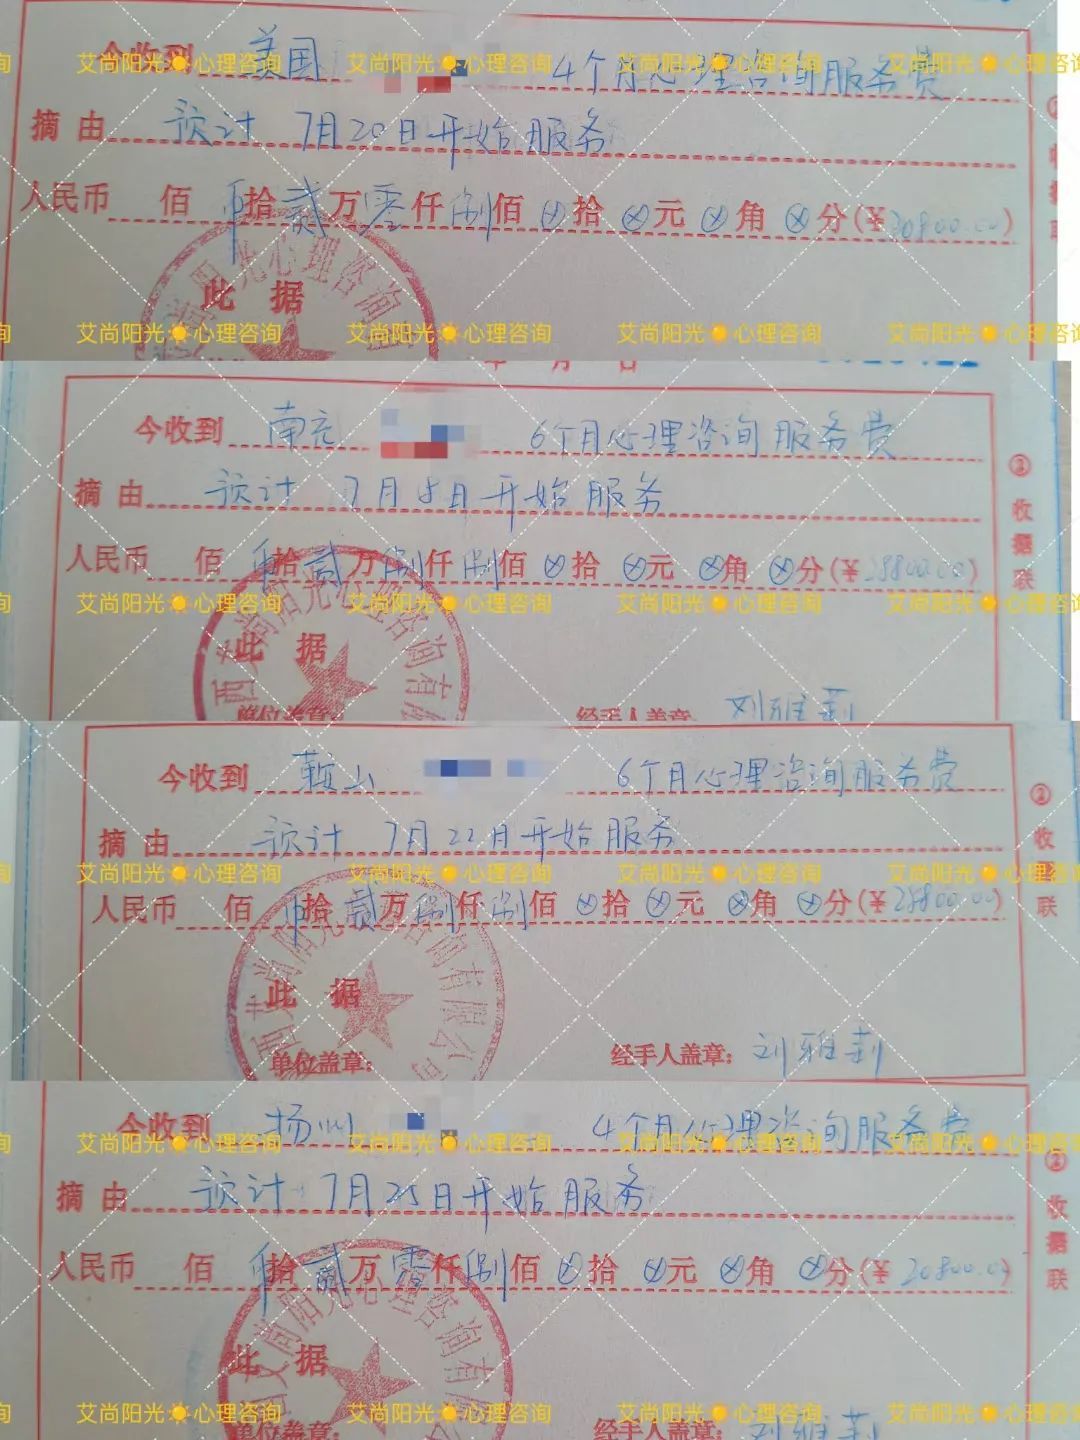 今收到 美国 4个月心理咨询服务费
摘由 预计 7月20日开始服务
人民币 佰 币拾贰万零仟捌佰⊗拾⊗元⊗角⊗分(¥20800.00)
此据
年 月 日
今收到 南充 6个月心理咨询服务费
摘由 预计 7月8日开始服务
人民币 佰 币拾贰万捌仟捌佰⊗拾⊗元⊗角⊗分(¥28800.00)
此据
单位盖章: 经手人盖章: 刘雅莉
② 收据联
西安尚阳光心理咨询有限
今收到 鞍山 6个月心理咨询服务费
摘由 预计 7月22日开始服务
人民币 佰 币拾贰万捌仟捌佰⊗拾⊗元⊗角⊗分(¥28800.00)
此据
单位盖章: 经手人盖章: 刘雅莉
② 收 联
尚阳光心理咨询有限公司
今收到 扬州 4个月心理咨询服务费
摘由 预计 7月25日开始服务
人民币 佰 币拾贰万零仟捌佰⊗拾⊗元⊗角⊗分(¥20800.00)
此据
单位盖章: 经手人盖章: 刘雅莉
② 收据联
艾尚阳光 心理咨询